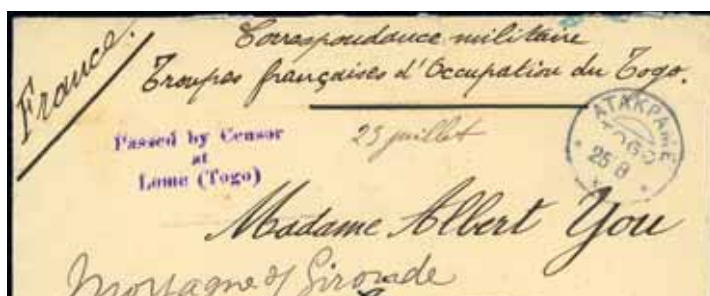 France.
Correspondance militaire
Troupes françaises d'Occupation du Togo.
Passed by Censor
at
Lome (Togo)
23 juillet
ATAKPAME
TOGO
25 8
Madame Albert You
Mortagne s/ Gironde